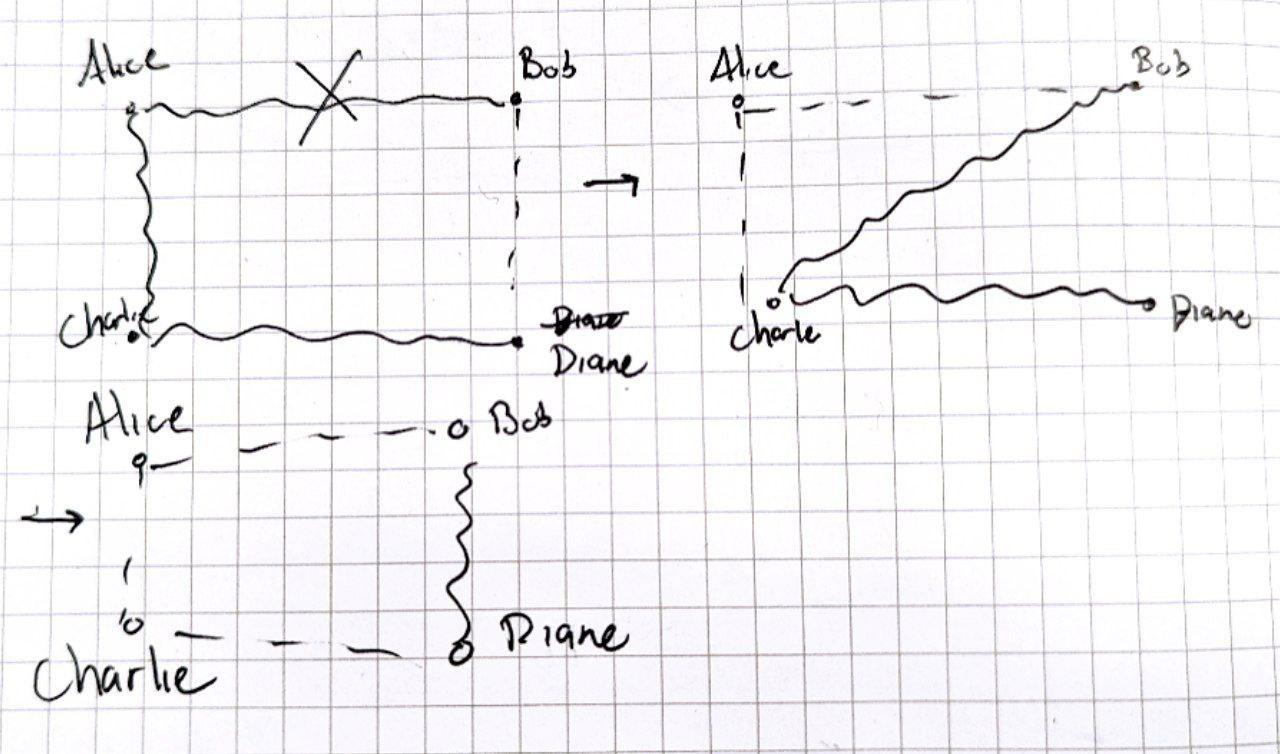 Alice
Bob
Charlie
Diane
Diane
Alice
Bob
Charle
Diane
Alice
Bob
Charlie
Diane